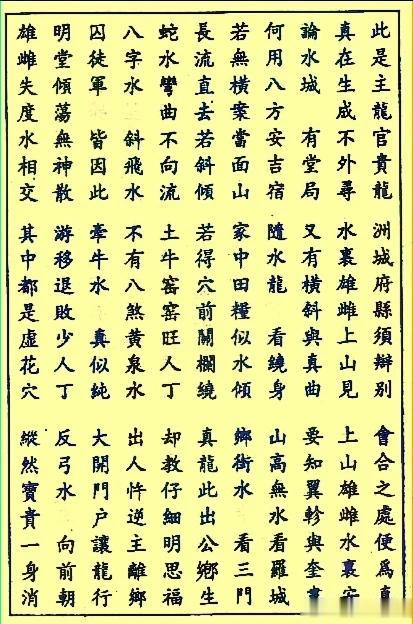 此是主龍官貴龍 洲城府縣須辯别 會合之處便爲真
真在生成不外尋 水裏雄雌上山見 上山雄雌水裏安
論水城 有堂局 又有橫斜與真曲 要知翼軫與奎
何用八方安吉宿 隨水龍 看繞身 山高無水看羅城
若無橫案當面山 家中田糧似水傾 鄉街水 看三門
長流直去若斜傾 若得穴前關欄繞 真龍此出公鄉生
蛇水彎曲不向流 土牛窑窑旺人丁 却教仔細明思福
八字水 斜飛水 不有八煞黃泉水 出人忤逆主離鄉
囚徒軍 皆因此 牽牛水 真似純 大開門户讓龍行
明堂傾蕩無神散 游移退敗少人丁 反弓水 向前朝
雄雌失度水相交 其中都是虛花穴 縱然寶貴一身消